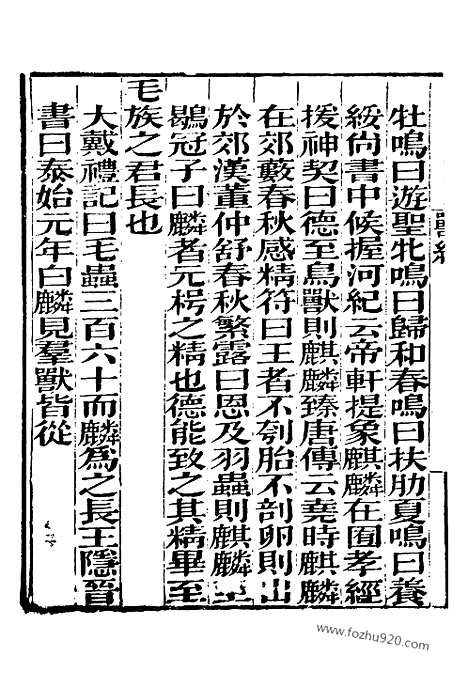 牡鳴曰遊聖牝鳴曰歸和春鳴曰扶肋夏鳴曰養
綏尙書中候握河紀云帝軒提象麒麟在囿孝經
援神契曰德至鳥獸則麒麟臻唐傳云堯時麒麟
在郊藪春秋感精符曰王者不刳胎不剖卵則出
於郊漢董仲舒春秋繁露曰恩及羽蟲則麒麟至
鶡冠子曰麟者元枵之精也德能致之其精畢至
毛族之君長也
大戴禮記曰毛蟲三百六十而麟為之長王隱晉
書曰泰始元年白麟見羣獸皆從
www.fozhu920.com